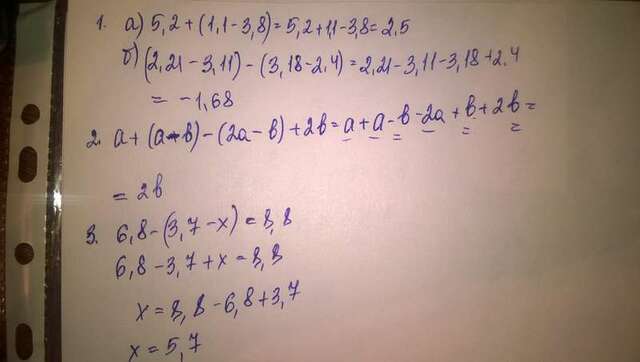 1. а) 5,2 + (1,1 - 3,8) = 5,2 + 11 - 3,8 = 2,5
б) (2,21 - 3,11) - (3,18 - 2,4) = 2,21 - 3,11 - 3,18 + 2,4
= -1,68
2. a + (a - b) - (2a - b) + 2b = a + a - b - 2a + b + 2b =
= 2b
3. 6,8 - (3,7 - x) = 8,8
6,8 - 3,7 + x = 8,8
x = 8,8 - 6,8 + 3,7
x = 5,7